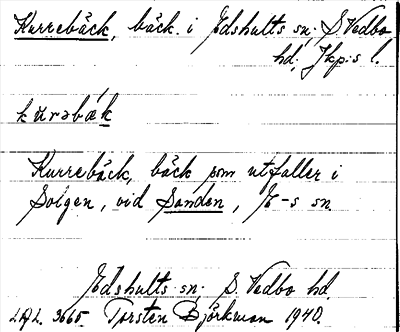 Kurrebäck, bäck i Edshults sn; S Vedbo
hd; Jkp:s l.
kurəbæk
Kurrebäck, bäck som utfaller i
Solgen, vid Sanden, E-s sn
Edshults sn; S. Vedbo hd.
3665 Torsten Björkman 1940.